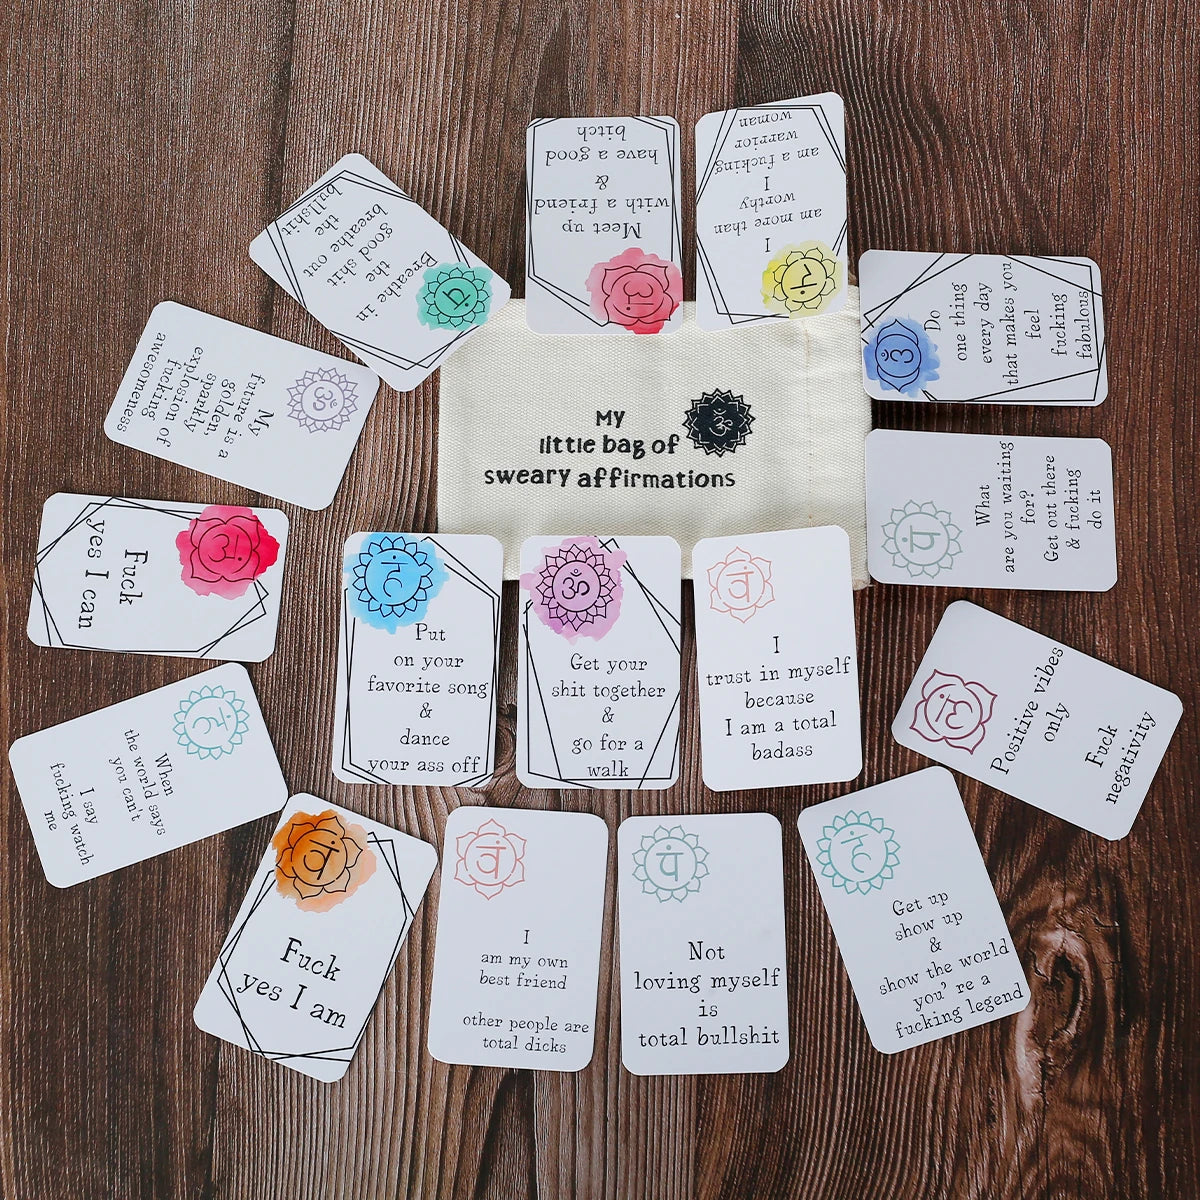 Breathe in
the
good shit
breathe out
the
bullshit
Meet up
with a friend
&
have a good
bitch
I
am more than
worthy
I
am a fucking
warrior
woman
Do
one thing
every day
that makes you
feel
fucking
fabulous
My
future is a
golden,
sparkly
fucking
explosion of
awesomeness
My
little bag of
sweary affirmations
ॐ
What
are you waiting
for?
Get out there
& fucking
do it
Fuck
yes I can
Put
on your
favorite song
&
dance
your ass off
ॐ
Get your
shit together
&
go for a
walk
वं
I
trust in myself
because
I am a total
badass
Positive vibes
only
Fuck
negativity
When
the world says
you can't
I say
fucking watch
me
वं
Fuck
yes I am
वं
I
am my own
best friend
other people are
total dicks
पं
Not
loving myself
is
total bullshit
Get up
show up
&
show the world
you' re a
fucking legend